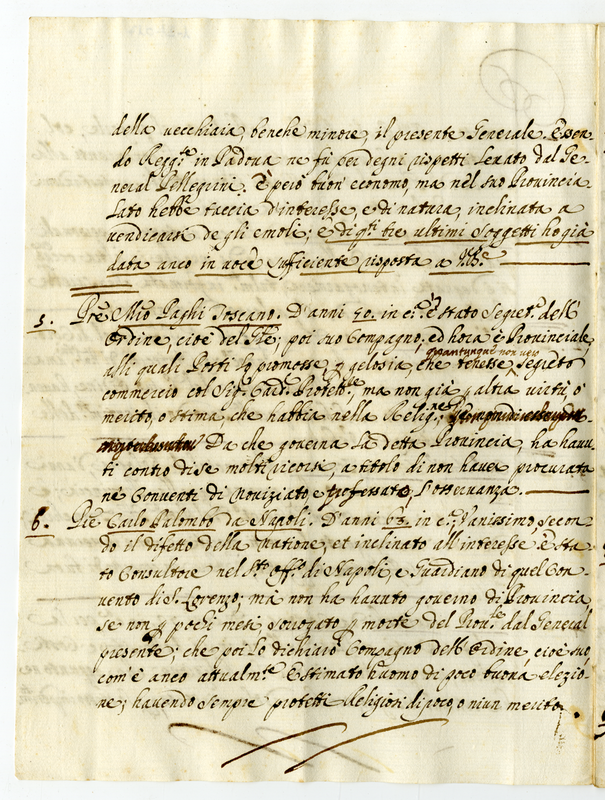 della vecchiaia, benche minore, il presente Generale. Essen-
do Regg.te in Padova ne fù per degni rispetti levato dal Ge-
neral Pellegrini. È però buon' economo, ma nel suo Provincia
lato hebbe taccia d'interesse, e di natura, inclinata a
vendicarsi de gli emoli; e di q.ti tre ultimi soggetti ho già
data anco in voce sufficiente risposta a
5. Pre Mro Paghi Toscano. D'anni 50. in c.a, è stato Segret.o dell'
Ordine, cioè del Ge; poi suo Compagno, ed hora è Provinciale,
alli quali Posti lo promosse, gelosia, che tenesse, segreto
quantunque non vero
commercio col Sig. Card. Protett.re, ma non già altra virtù, ò
merito, o stima, che habbia nella Relig.ne;
Da che governa la detta Provincia, ha havu-
ti contro di se molti ricorsi, a titolo di non haver procurata
nè Conventi di Noviziato, e professato, l'osservanza.
6. Pre Carlo Palombo da Napoli. D'anni 63. in c.a; Vanissimo, secon-
do il difetto della Natione, et inclinato all'interesse. È sta-
to Consultore nel S.to Off.o di Napoli, e Guardiano di quel Con-
vento di S. Lorenzo; mà non ha havuto governo di Provincia,
se non pochi mesi, sorrogato morte del Prov.le dal Generale
presente; che poi lo dichiarò Compagno dell' Ordine, cioè suo
com'è anco attualm.te È stimato huomo di poco buona elezio-
ne; havendo sempre protetti Religiosi di poco, o niun merito.